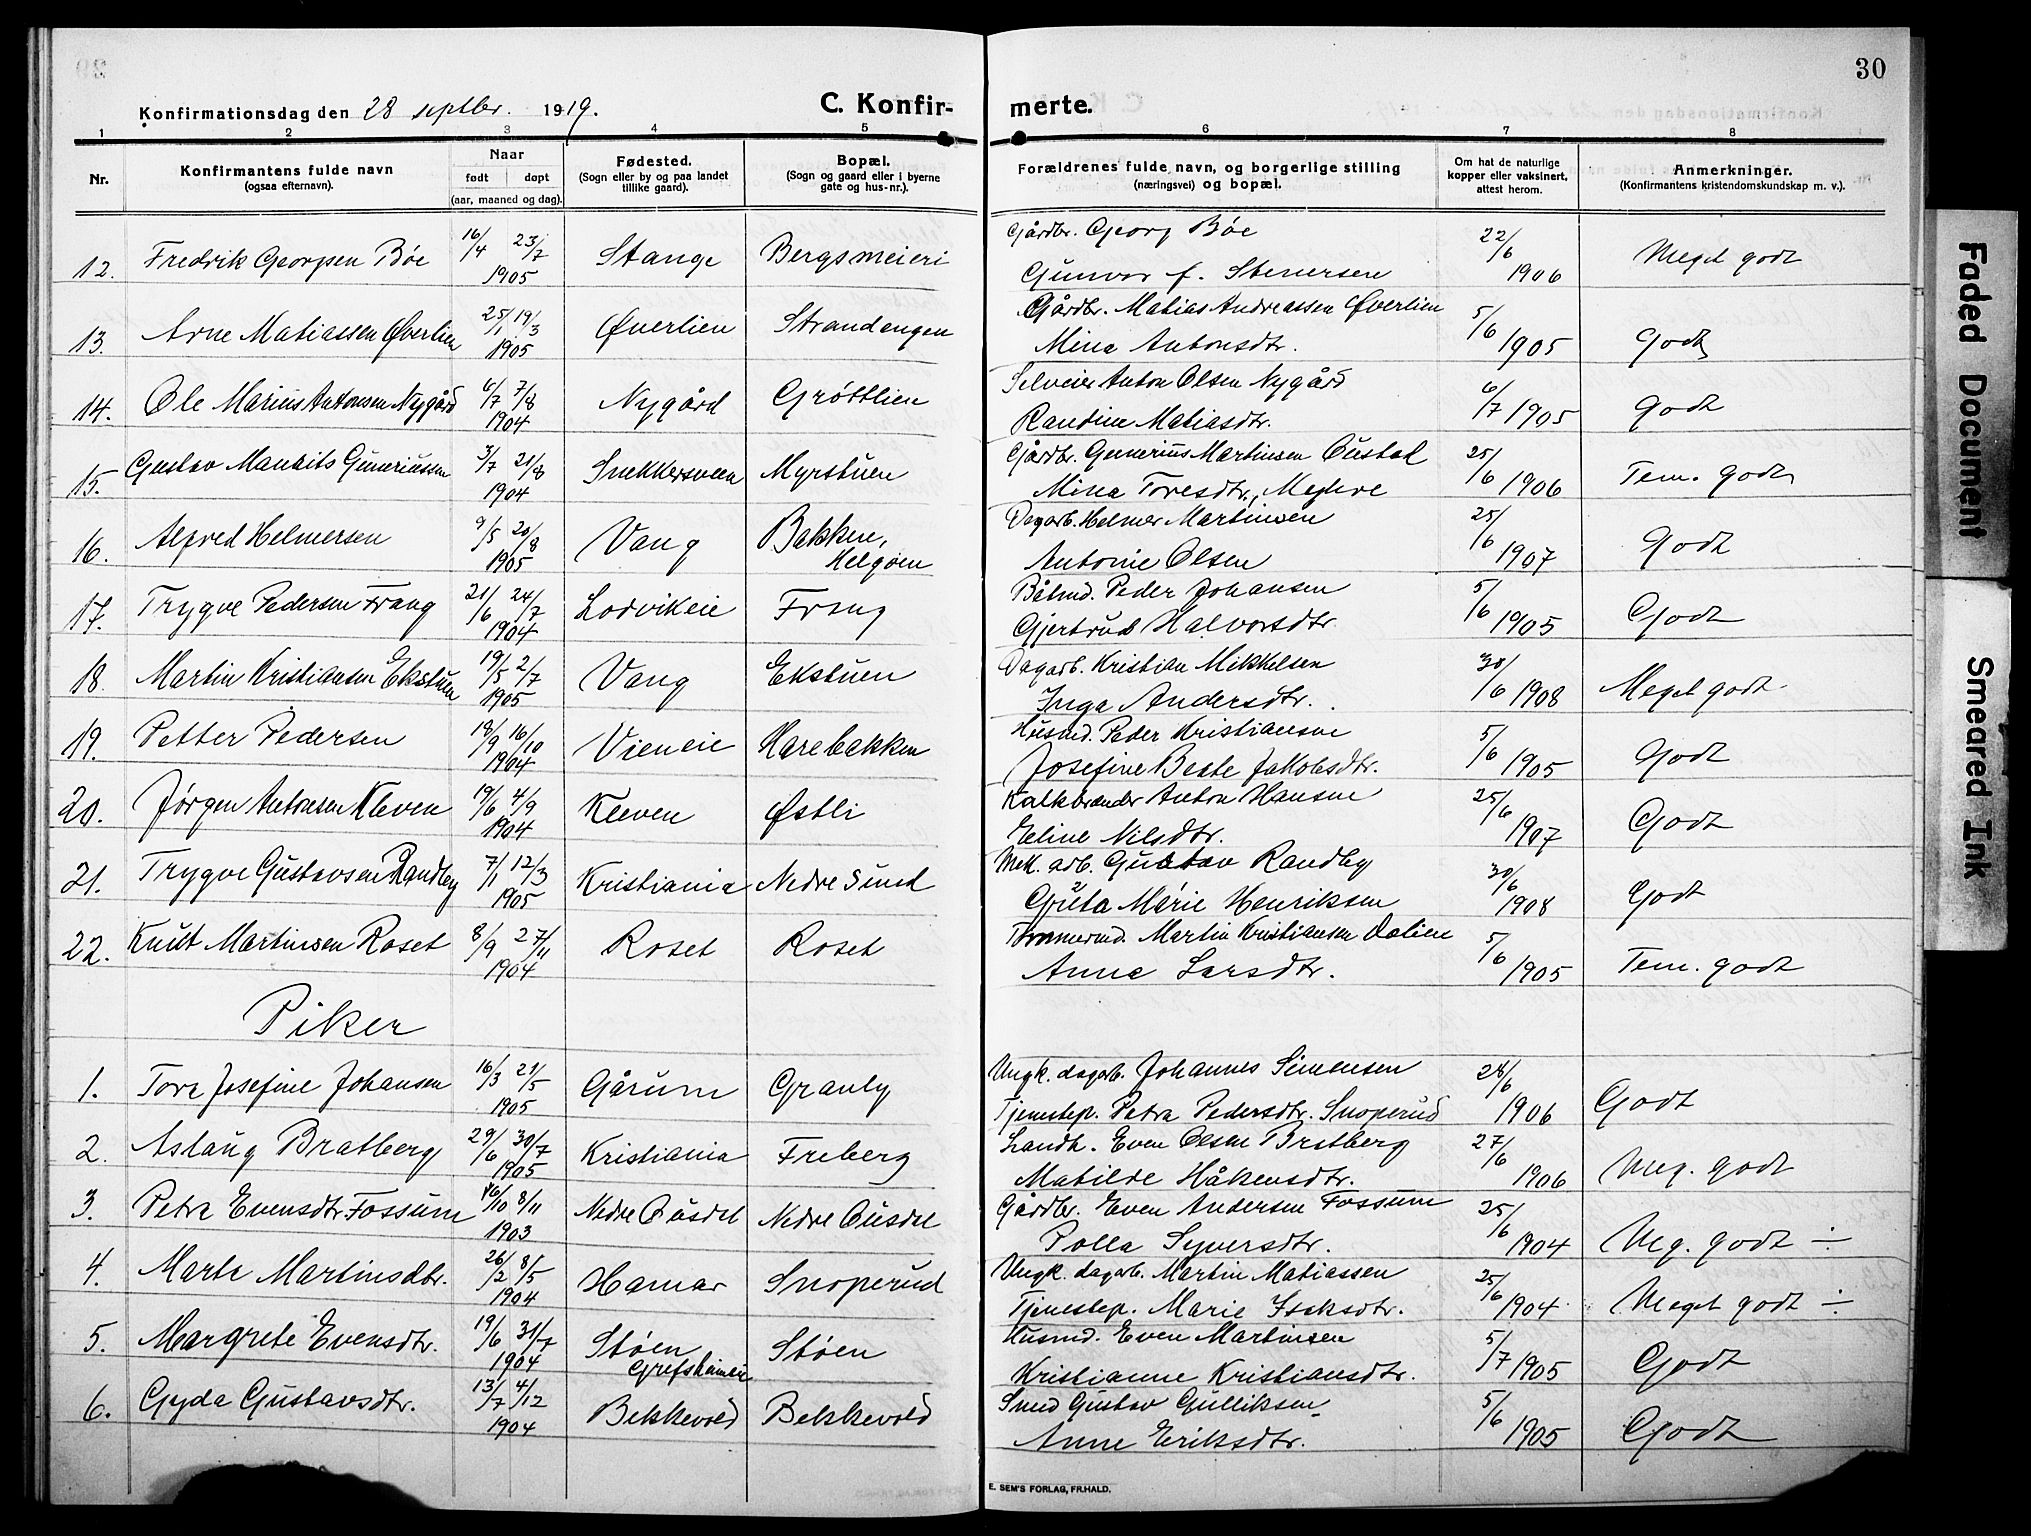 30
Konfirmationsdag den 28 septbr. 1919.
C. Konfirmerte.
1 2 3 4 5 6 7 8
Nr.
Konfirmantens fulde navn
(ogsaa efternavn).
Naar
født døpt
(aar, maaned og dag).
Fødested.
(Sogn eller by og paa landet
tillike gaard).
Bopæl.
(Sogn og gaard eller i byerne
gate og hus-nr.).
Forældrenes fulde navn, og borgerlige stilling
(næringsvei) og bopæl.
Om hat de naturlige
kopper eller vaksinert,
attest herom.
Anmerkninger.
(Konfirmantens kristendomskundskap m. v.).
12. Fredrik Georgsen Bøe 16/4 23/7 1905 Stange Bergsmeieri Gårdbr. Georg Bøe
Gunvor f. Stenersen 22/6 1906 Meget godt
13. Arne Matiassen Øverlien 25/1 19/3 1905 Øverlien Strandengen Gårdbr. Matias Andreassen Øverlien
Mina Antonsdtr. 5/6 1905 Godt
14. Ole Marius Antonsen Nygård 6/7 7/8 1904 Nygård Grøttlien Selveier Anton Olsen Nygård
Randine Matiasdtr. 6/7 1905 Godt
15. Gustav Maurits Guneriussen 3/7 21/8 1904 Snekkersveen Myrstuen Gårdbr. Gunerius Martinsen
Mina Toresdtr., 25/6 1906 Tem. godt
16. Alfred Helmersen 9/5 20/8 1905 Vang Bakken, Helgøen Dagarb. Helmer Martinsen
Antonie Olsen 25/6 1907 Godt
17. Trygve Pedersen Frang 21/6 24/7 1904 Lodvikeie Frang Peder Johansen
Gjertrud Halvorsdtr. 5/6 1905 Godt
18. Martin Kristiansen Ekstuen 19/5 2/7 1905 Vang Ekstuen Dagarb. Kristian Mikkelsen
Inga Andersdtr. 30/6 1908 Meget godt
19. Petter Pedersen 18/9 16/10 1904 Vieneie Harebakken Husmd. Peder Kristiansen
Josefine Beate Jakobsdtr. 5/6 1905 Godt
20. Jørgen Antonsen Kleven 19/6 4/9 1904 Kleven Østli Kalkbrænder Anton Hansen
Eline Nilsdtr. 25/6 1907 Godt
21. Trygve Gustavsen Randby 7/1 12/3 1905 Kristiania Nedre Sund Mek. arb. Gustav Randby
Gjuta Marie Henriksen 30/6 1908 Godt
22. Knut Martinsen Roset 8/9 27/11 1904 Roset Roset Tømmermd. Martin Kristiansen Dalien
Anne Larsdtr. 5/6 1905 Tem. godt
Piker
1. Tora Josefine Johansen 16/3 21/5 1905 Gårum Granly Ungk. dagarb. Johannes Simensen
Tjenestep. Petra Pedersdtr. Snoperud 28/6 1906 Godt
2. Aslaug Bratberg 29/6 30/7 1905 Kristiania Freberg Landh. Even Olsen Bratberg
Matilde Håkensdtr. 27/6 1906 Meg. godt
3. Petra Evensdtr. Fossum 16/10 8/11 1903 Nedre Busdal Nedre Busdal Gårdbr. Even Andersen Fossum
Polla Syversdtr. 25/6 1904 Meg. godt ÷
4. Marta Martinsdtr. 26/2 8/5 1904 Hamar Snoperud Ungk. dagarb. Martin Matiassen
Tjenestep. Marie Isaksdtr. 25/6 1904 Meget godt ÷
5. Margrete Evensdtr. 19/6 31/7 1904 Støen Grefsheimeie Støen Husmd. Even Martinsen
Kristianne Kristiansdtr. 5/7 1905 Godt
6. Gyda Gustavsdtr. 13/7 4/12 1904 Bekkevold Bekkevold Smed Gustav Gulliksen
Anne Eriksdtr. 5/6 1905 Godt
E. SEM'S FORLAG, FR.HALD.
Faded Document
Smeared Ink